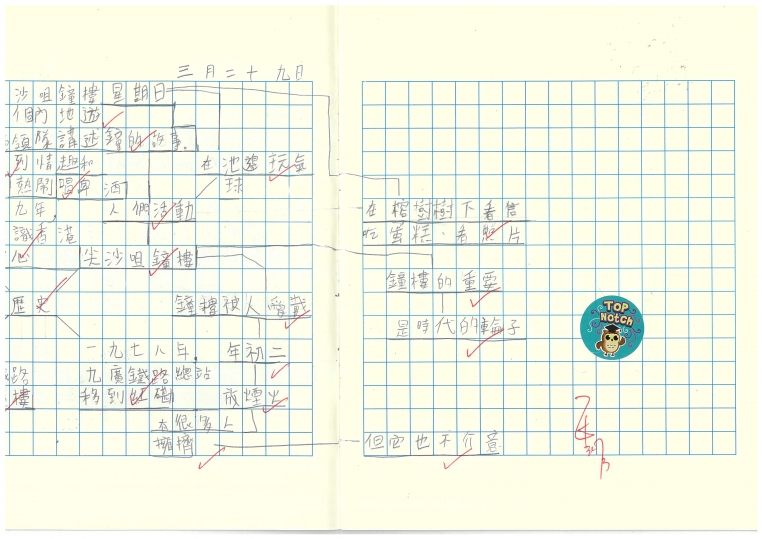 三月二十九日
沙咀鐘樓 星期日
個內地遊
領隊講述鐘的故事。
到情趣和
在池邊玩氣
熱鬧唱
酒
球
九年，
人們活動
識香港
心
尖沙咀鐘樓
歷史
鐘樓被人愛戴
一九七八年，
年初二
路
九廣鐵路總站
樓
移到紅磡
放煙火
太很多人
擁擠
在榕樹樹下看信
吃蛋糕、看照片
鐘樓的重要
是時代的輪子
但它也不介意
TOP NOTCH